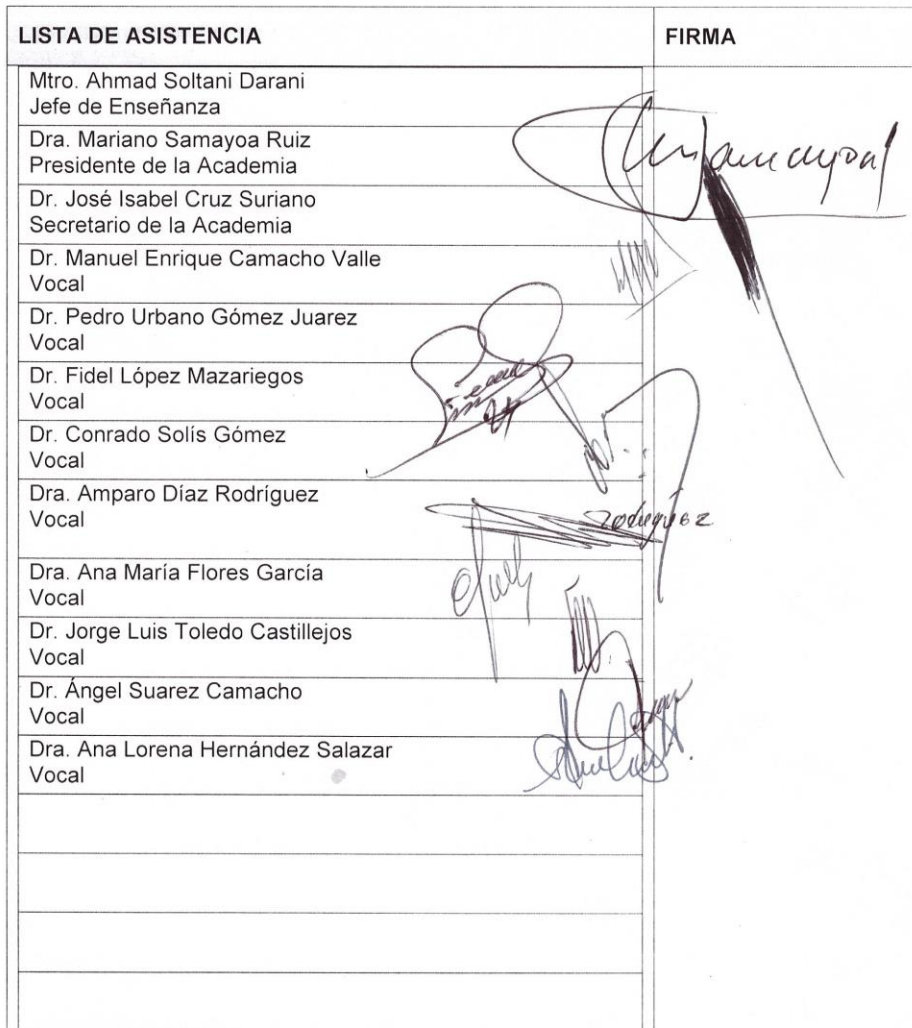 LISTA DE ASISTENCIA FIRMA
Mtro. Ahmad Soltani Darani
Jefe de Enseñanza
Dra. Mariano Samayoa Ruiz
Presidente de la Academia
Dr. José Isabel Cruz Suriano
Secretario de la Academia
Dr. Manuel Enrique Camacho Valle
Vocal
Dr. Pedro Urbano Gómez Juarez
Vocal
Dr. Fidel López Mazariegos
Vocal
Dr. Conrado Solís Gómez
Vocal
Dra. Amparo Díaz Rodríguez
Vocal
Rodriguez
Dra. Ana María Flores García
Vocal
Dr. Jorge Luis Toledo Castillejos
Vocal
Dr. Ángel Suarez Camacho
Vocal
Dra. Ana Lorena Hernández Salazar
Vocal